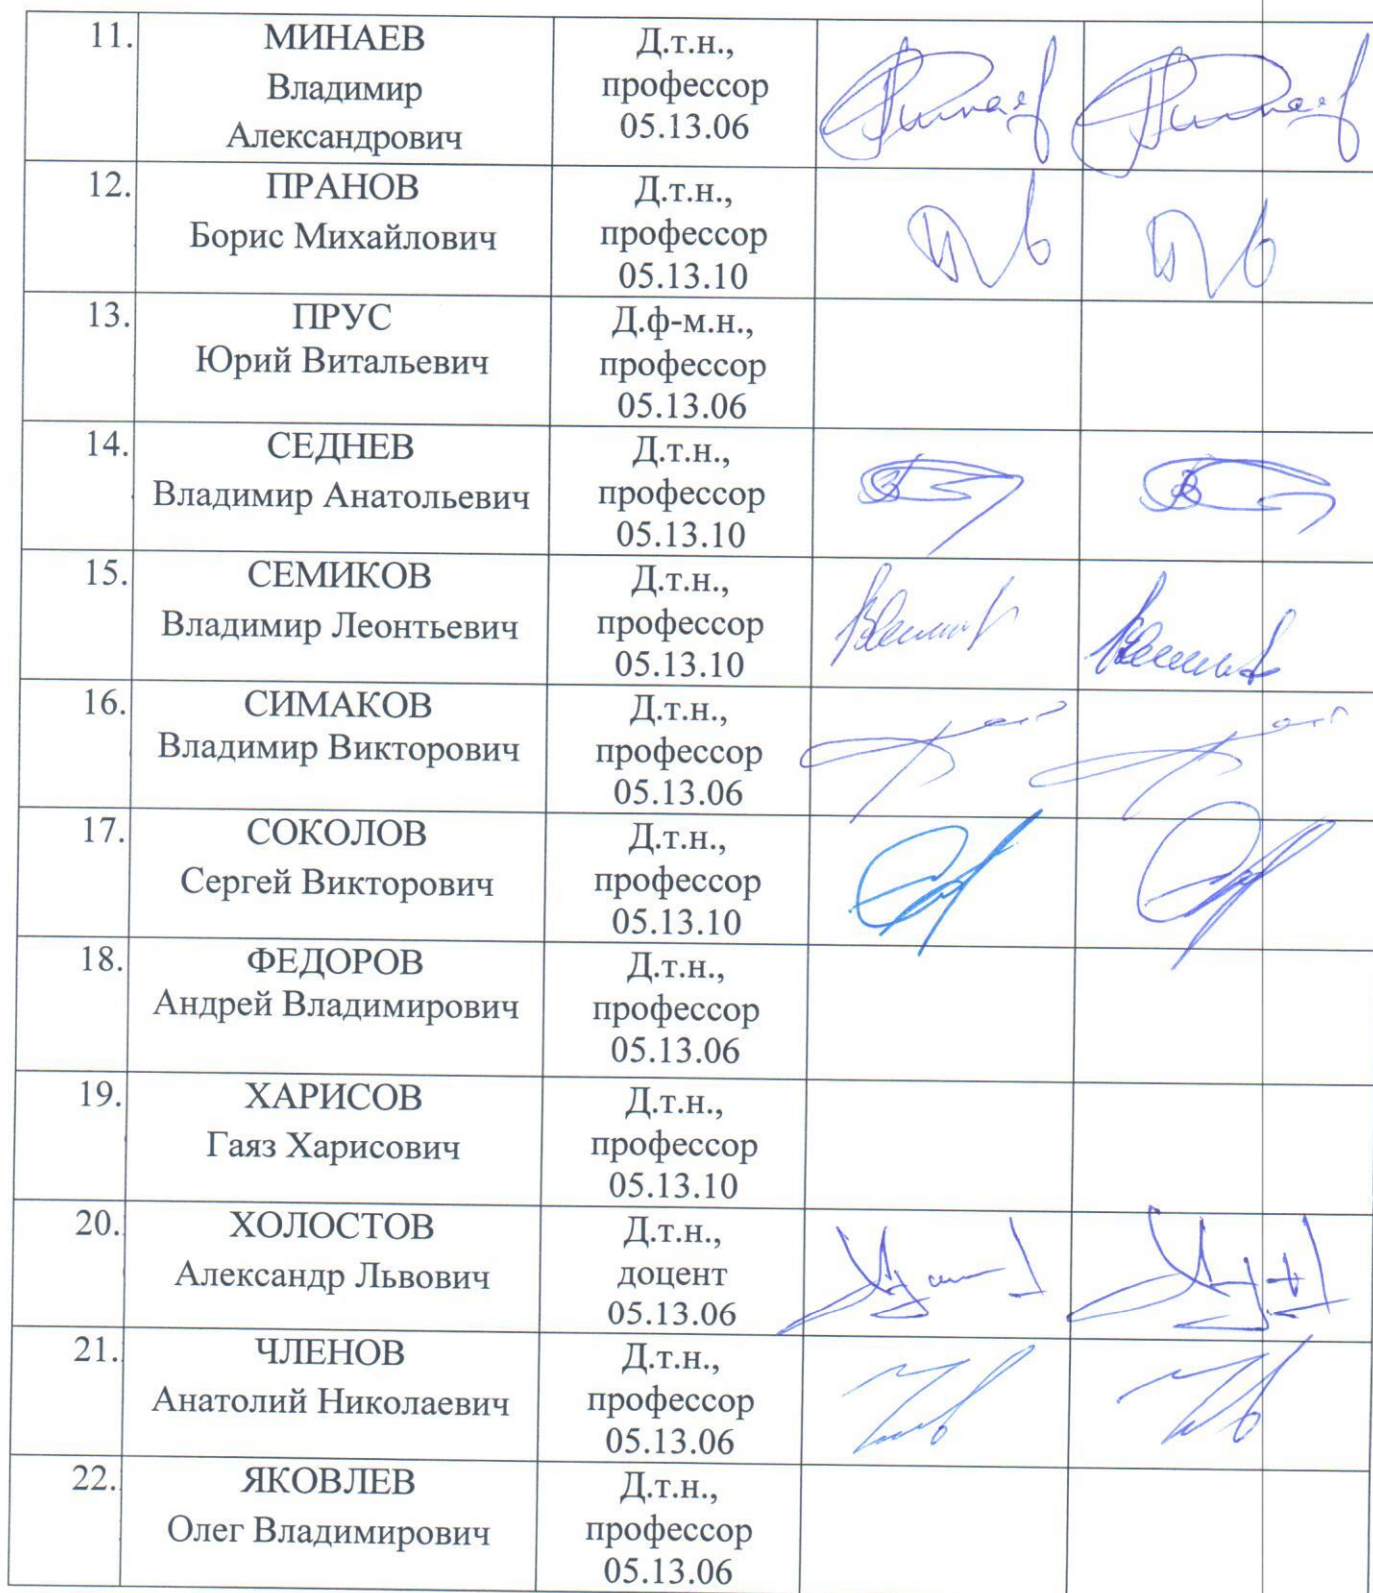 11.
МИНАЕВ
Владимир
Александрович
Д.т.н.,
профессор
05.13.06
12.
ПРАНОВ
Борис Михайлович
Д.т.н.,
профессор
05.13.10
13.
ПРУС
Юрий Витальевич
Д.ф-м.н.,
профессор
05.13.06
14.
СЕДНЕВ
Владимир Анатольевич
Д.т.н.,
профессор
05.13.10
15.
СЕМИКОВ
Владимир Леонтьевич
Д.т.н.,
профессор
05.13.10
16.
СИМАКОВ
Владимир Викторович
Д.т.н.,
профессор
05.13.06
17.
СОКОЛОВ
Сергей Викторович
Д.т.н.,
профессор
05.13.10
18.
ФЕДОРОВ
Андрей Владимирович
Д.т.н.,
профессор
05.13.06
19.
ХАРИСОВ
Гаяз Харисович
Д.т.н.,
профессор
05.13.10
20.
ХОЛОСТОВ
Александр Львович
Д.т.н.,
доцент
05.13.06
21.
ЧЛЕНОВ
Анатолий Николаевич
Д.т.н.,
профессор
05.13.06
22.
ЯКОВЛЕВ
Олег Владимирович
Д.т.н.,
профессор
05.13.06